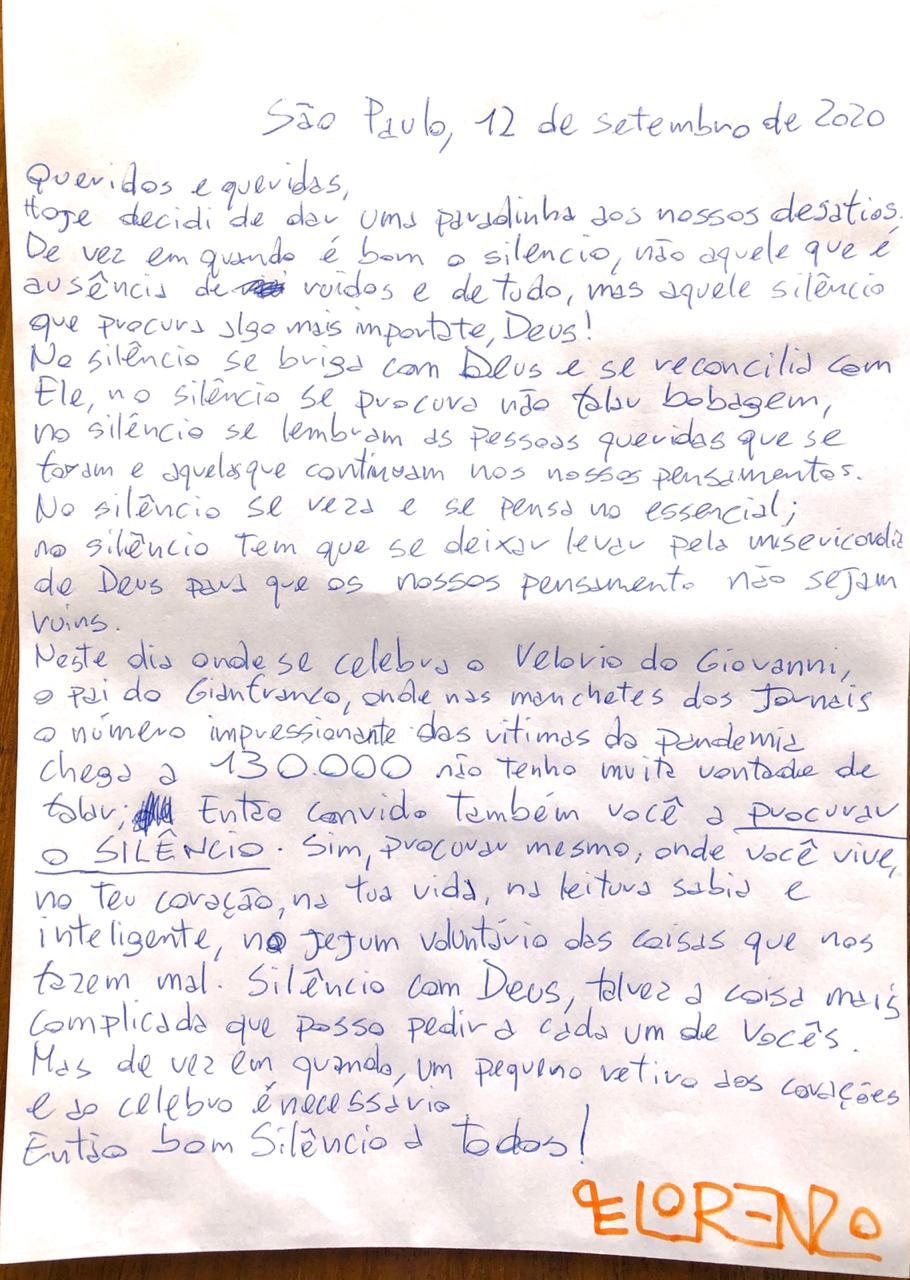 São Paulo, 12 de setembro de 2020
Queridos e queridas,
Hoje decidi de dar uma paradinha aos nossos desafios.
De vez em quando é bom o silencio, não aquele que é
ausência de ruidos e de tudo, mas aquele silêncio
que procura algo mais importate, Deus!
No silêncio se briga com Deus e se reconcilia com
Ele, no silêncio se procura não falar bobagem,
no silêncio se lembram as pessoas queridas que se
foram e aquelas que continuam nos nossos pensamentos.
No silêncio se reza e se pensa no essencial;
no silêncio tem que se deixar levar pela misericordia
de Deus para que os nossos pensamento não sejam
ruins.
Neste dia onde se celebra o Velorio do Giovanni,
o pai do Gianfranco, onde nas manchetes dos Jornais
o número impressionante das vitimas da pandemia
chega a 130.000 não tenho muita vontade de
falar; Então convido também você a procurar
o SILÊNCIO. Sim, procurar mesmo, onde você vive,
no teu coração, na tua vida, na leitura sabia e
inteligente, no jejum voluntário das coisas que nos
fazem mal. Silêncio com Deus, talvez a coisa mais
complicada que posso pedir a cada um de Vocês.
Mas de vez em quando, um pequeno retiro dos corações
e do celebro é necessário.
Então bom Silêncio a todos!
LORENZO